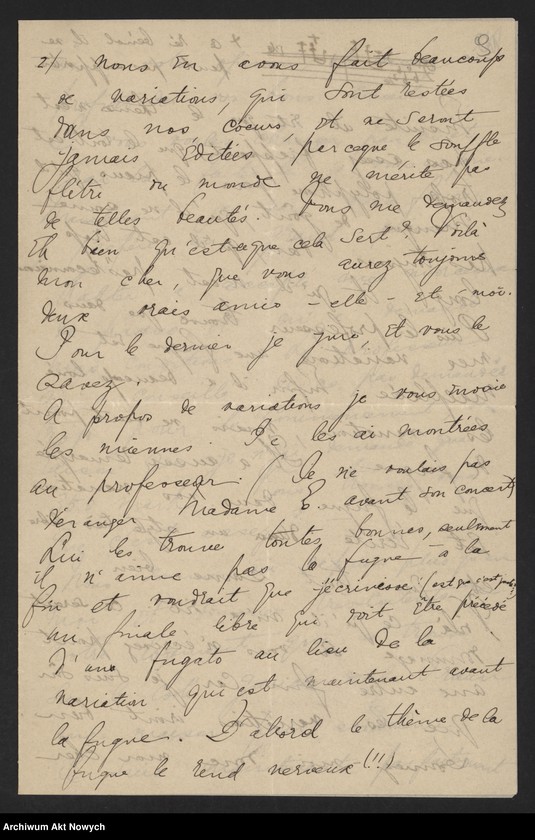 2) nous en avons fait beaucoup
de variations, qui sont restées
dans nos coeurs, et ne seront
jamais éditées, parceque le souffle
flétri du monde ne mérite pas
de telles beautés. Vous me demandez
Eh bien qu'est-ceque cela sert? Voilà
mon cher, que vous aurez toujours
deux vrais amis – elle – et – moi.
Pour le dernier je jure, et vous le
savez.
A propos de variations je vous envoie
les miennes. Je les ai montrées
au professeur. (Je ne voulais pas
déranger Madame E. avant son concert)
Lui les trouve toutes bonnes, seulement
il n'aime pas la fugue à la
fin et voudrait que j'écrivisse
un finale libre qui doit être précédé
d'une fugato au lieu de la
variation qui est maintenant avant
la fugue. D'abord le thème de la
fugue le rend nerveux (!!)
Archiwum Akt Nowych